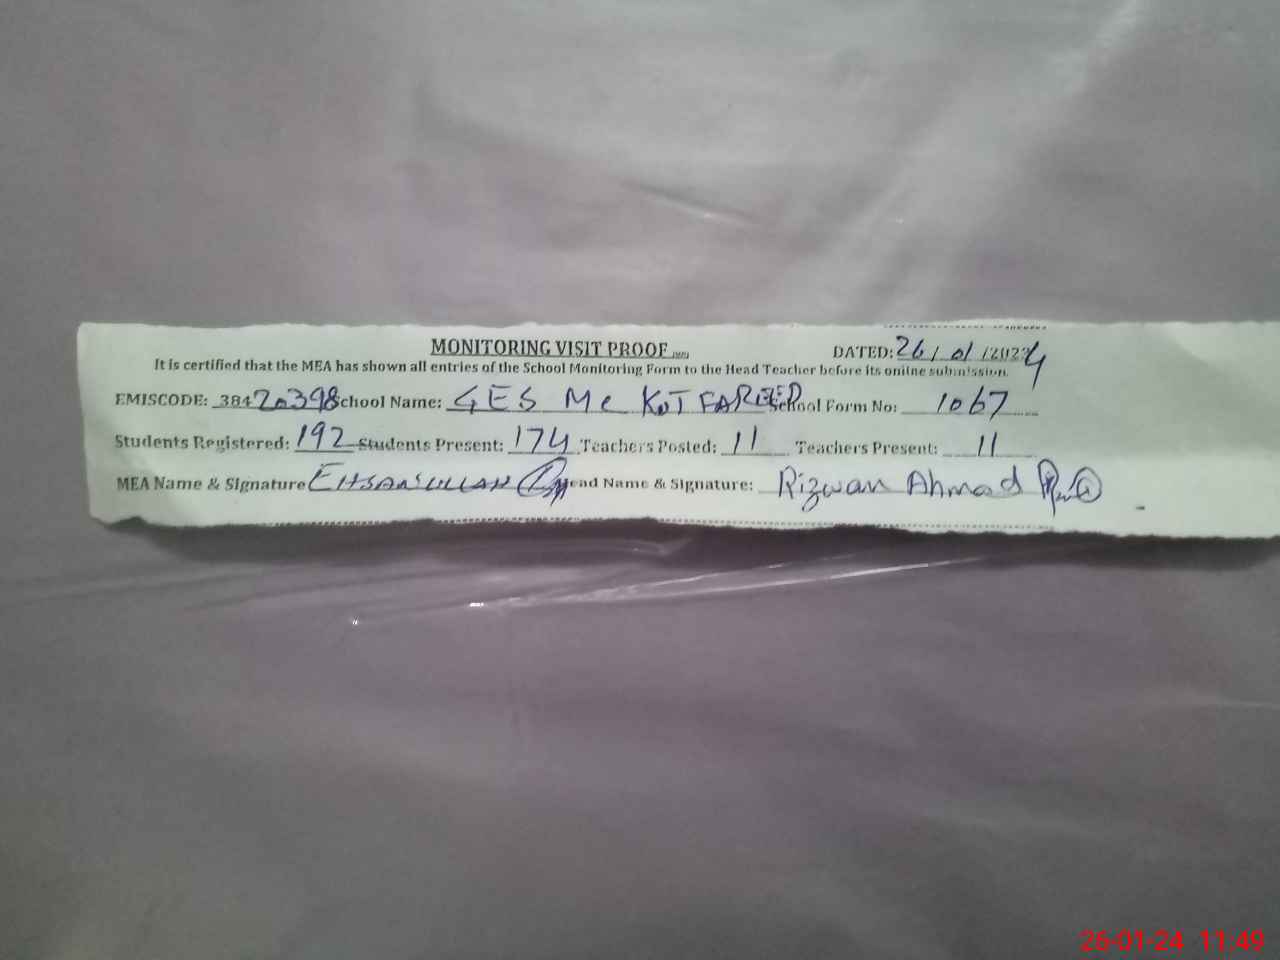 MONITORING VISIT PROOF
DATED: 26/01/2024
It is certified that the MEA has shown all entries of the School Monitoring Form to the Head Teacher before its online submission.
EMISCODE: 38420398 School Name: GES MC KOT FAREED School Form No: 1067
Students Registered: 192 Students Present: 174 Teachers Posted: 11 Teachers Present: 11
MEA Name & Signature EHSANULLAH Head Name & Signature: Rizwan Ahmad
26-01-24 11:49